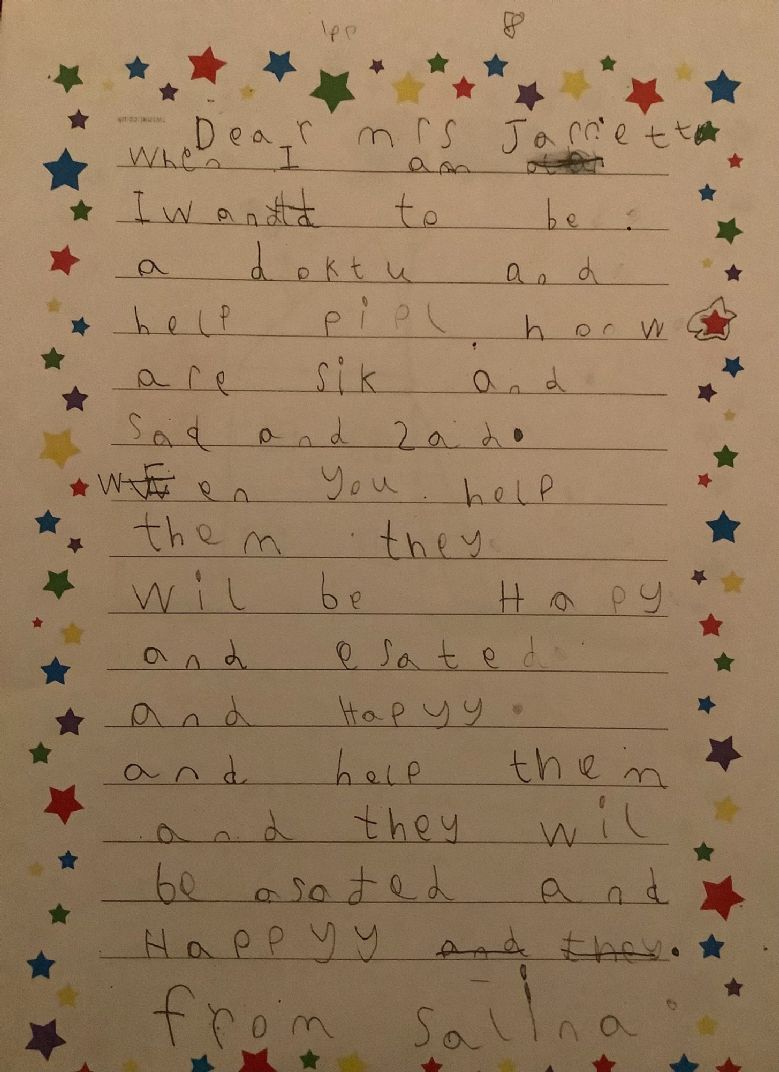 8
Dear mrs Jarrett
When I am
I wand to be.
a doktu and
help pipl hoow
are sik and
sad and 2ad.
Wen you help
them they
wil be Hapy
and esated
and Hapyy.
and help them
and they wil
be asated and
Happyy and they.
from salina